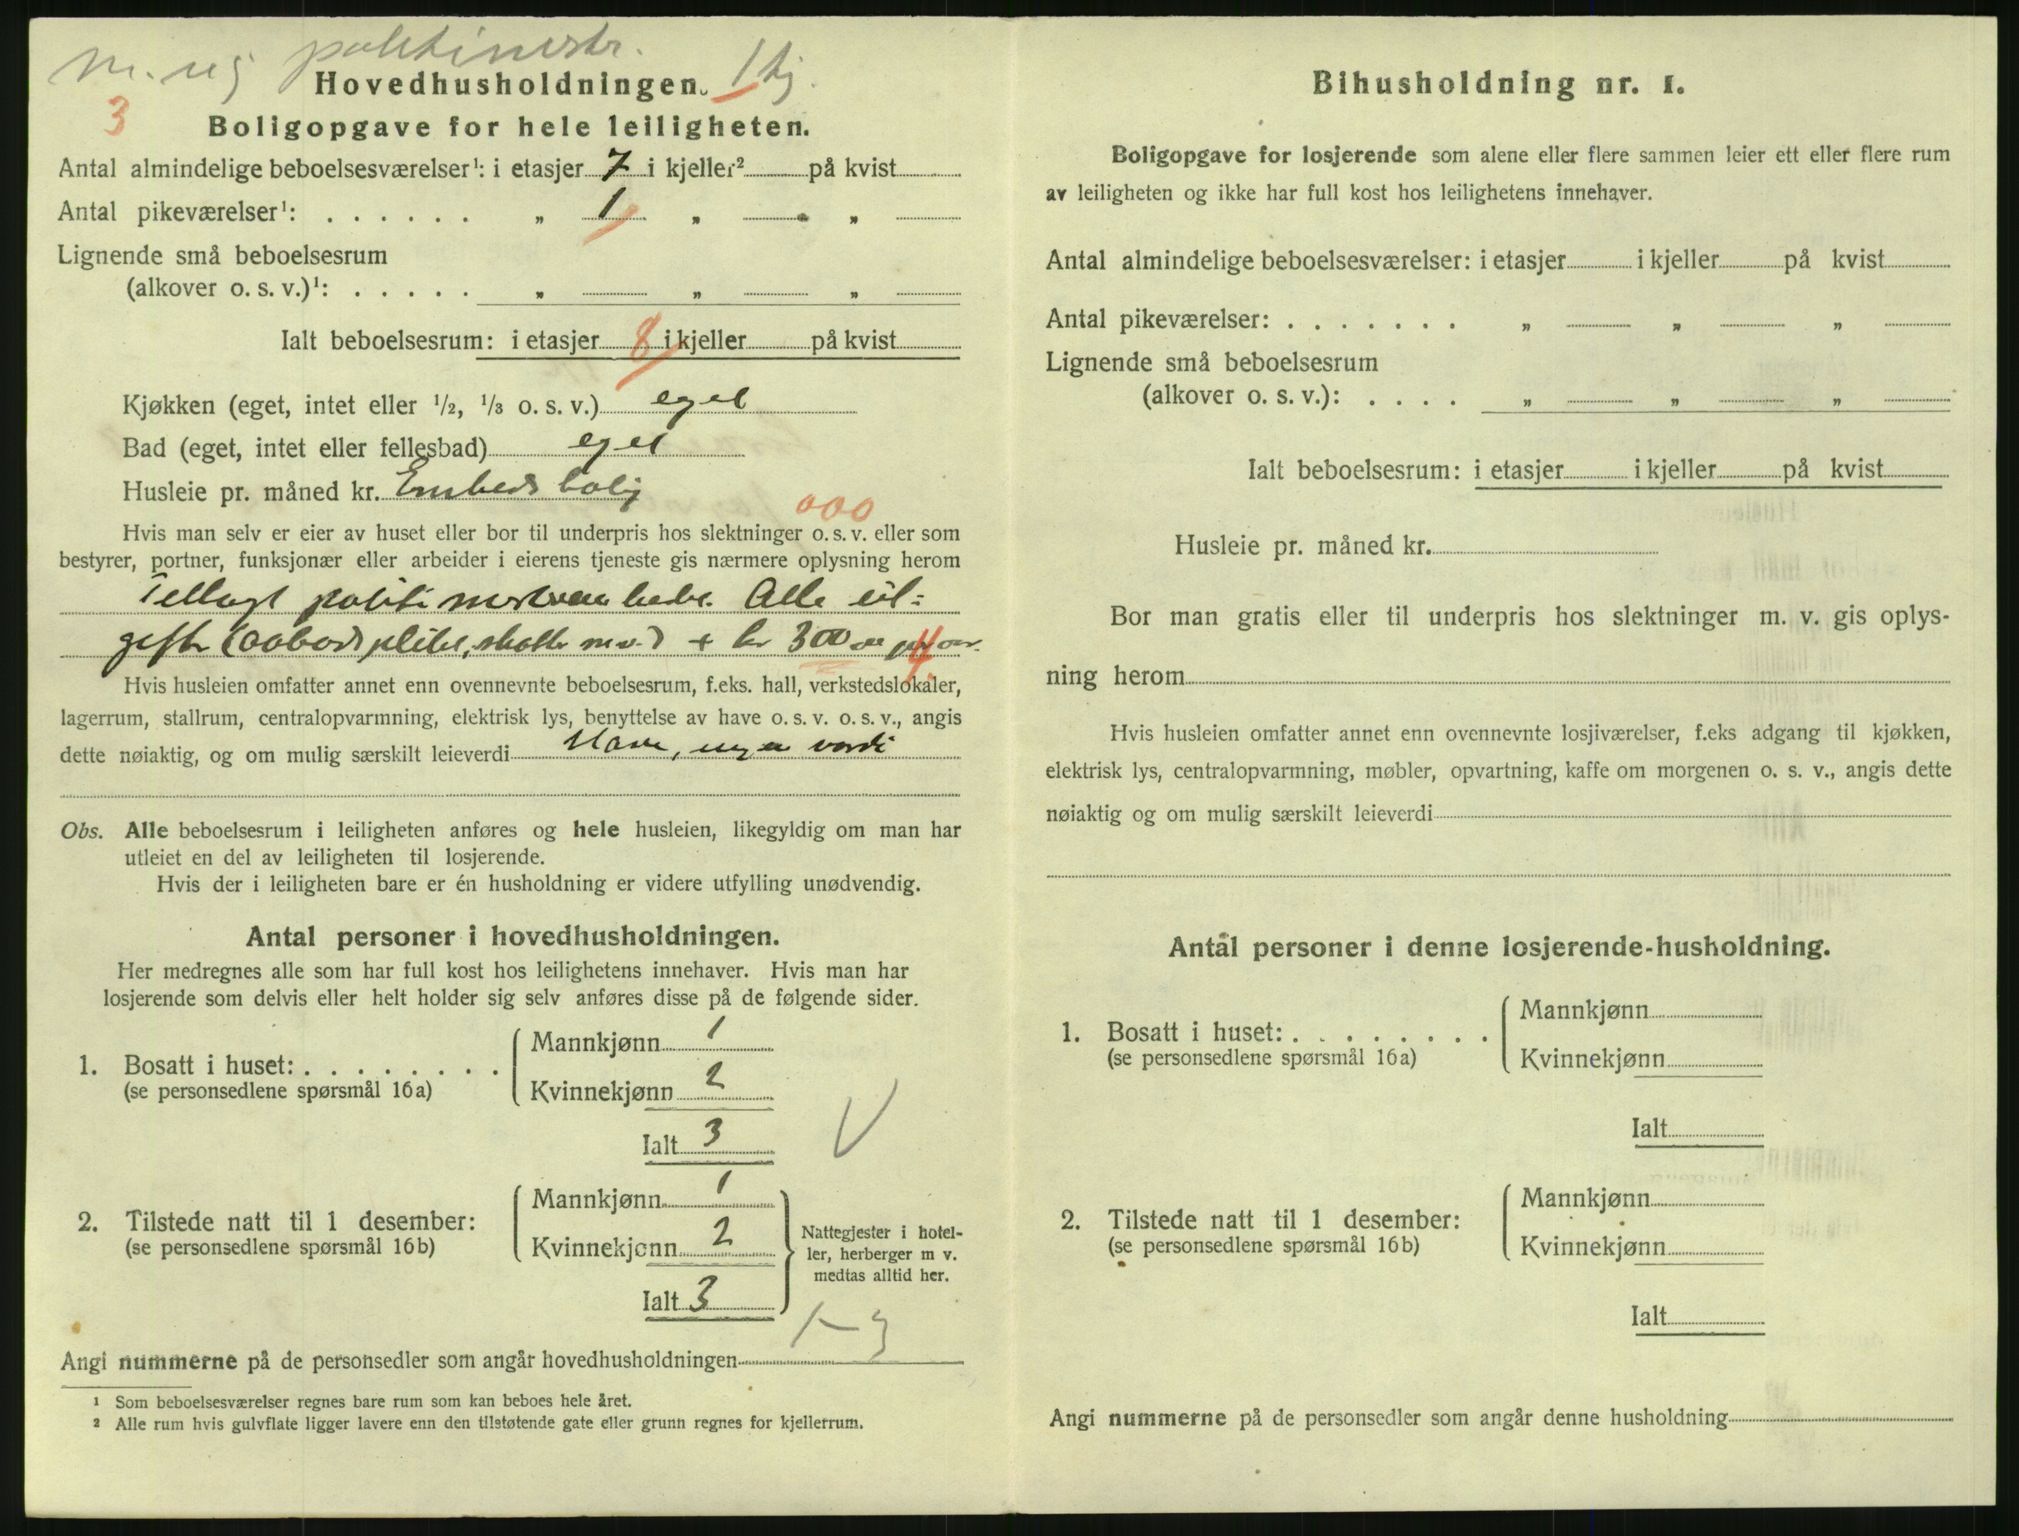 m. ug politimstr.
Hovedhusholdningen. 1 tj.
3
Boligopgave for hele leiligheten.
Antal almindelige beboelsesværelser¹: i etasjer 7 i kjeller² på kvist
Antal pikeværelser¹: . . . . . . „ 1 „ „
Lignende små beboelsesrum
(alkover o. s. v.)¹: . . . . . „ „ „
Ialt beboelsesrum: i etasjer 8 i kjeller på kvist
Kjøkken (eget, intet eller 1/2, 1/3 o. s. v.) eget
Bad (eget, intet eller fellesbad) eget
Husleie pr. måned kr. Embedsbolig
000
Hvis man selv er eier av huset eller bor til underpris hos slektninger o. s. v. eller som
bestyrer, portner, funksjonær eller arbeider i eierens tjeneste gis nærmere oplysning herom
Tillagt politimesterembede. Alle ut-
gifter (aabodsplikt, skatter m.v.) + kr 300 per aar.
4.
Hvis husleien omfatter annet enn ovennevnte beboelsesrum, f.eks. hall, verkstedslokaler,
lagerrum, stallrum, centralopvarmning, elektrisk lys, benyttelse av have o. s. v. o. s. v., angis
dette nøiaktig, og om mulig særskilt leieverdi Have, ingen verdi
Obs. Alle beboelsesrum i leiligheten anføres og hele husleien, likegyldig om man har
utleiet en del av leiligheten til losjerende.
Hvis der i leiligheten bare er én husholdning er videre utfylling unødvendig.
Antal personer i hovedhusholdningen.
Her medregnes alle som har full kost hos leilighetens innehaver. Hvis man har
losjerende som delvis eller helt holder sig selv anføres disse på de følgende sider.
1. Bosatt i huset: . . . . . . . .
(se personsedlene spørsmål 16a)
Mannkjønn 1
Kvinnekjønn 2
Ialt 3
2. Tilstede natt til 1 desember:
(se personsedlene spørsmål 16b)
Mannkjønn 1
Kvinnekjønn 2
Ialt 3
Nattegjester i hotel-
ler, herberger m v.
medtas alltid her.
Angi nummerne på de personsedler som angår hovedhusholdningen 1-3
¹ Som beboelsesværelser regnes bare rum som kan beboes hele året.
² Alle rum hvis gulvflate ligger lavere enn den tilstøtende gate eller grunn regnes for kjellerrum.
Bihusholdning nr. 1.
Boligopgave for losjerende som alene eller flere sammen leier ett eller flere rum
av leiligheten og ikke har full kost hos leilighetens innehaver.
Antal almindelige beboelsesværelser: i etasjer i kjeller på kvist
Antal pikeværelser: . . . . . . . „ „ „
Lignende små beboelsesrum
(alkover o. s. v.): . . . . „ „ „
Ialt beboelsesrum: i etasjer i kjeller på kvist
Husleie pr. måned kr.
Bor man gratis eller til underpris hos slektninger m. v. gis oplys-
ning herom
Hvis husleien omfatter annet enn ovennevnte losjiværelser, f.eks adgang til kjøkken,
elektrisk lys, centralopvarmning, møbler, opvartning, kaffe om morgenen o. s. v., angis dette
nøiaktig og om mulig særskilt leieverdi
Antal personer i denne losjerende-husholdning.
1. Bosatt i huset: . . . . . . . .
(se personsedlene spørsmål 16a)
Mannkjønn
Kvinnekjønn
Ialt
2. Tilstede natt til 1 desember:
(se personsedlene spørsmål 16b)
Mannkjønn
Kvinnekjønn
Ialt
Angi nummerne på de personsedler som angår denne husholdning